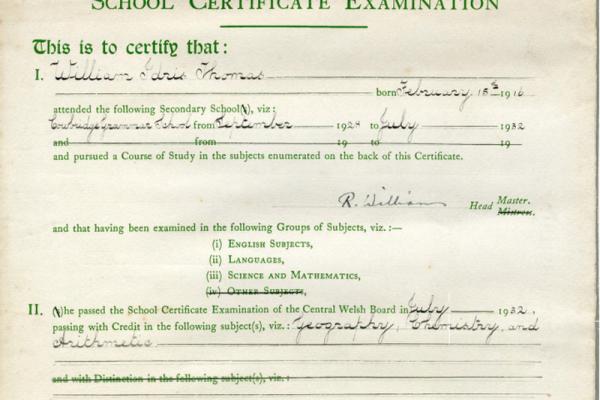 SCHOOL CERTIFICATE EXAMINATION
This is to certify that:
I. William Idris Thomas
born February 15th 1916
attended the following Secondary School(s), viz:
Cowbridge Grammar School from September 1924 to July 1932
and from 19 to 19
and pursued a Course of Study in the subjects enumerated on the back of this Certificate.
R. Williams Head Master.
Mistress.
and that having been examined in the following Groups of Subjects, viz.:—
(i) ENGLISH SUBJECTS,
(ii) LANGUAGES,
(iii) SCIENCE AND MATHEMATICS,
(iv) OTHER SUBJECTS,
II. (s)he passed the School Certificate Examination of the Central Welsh Board in July 1932,
passing with Credit in the following subject(s), viz.: Geography, Chemistry, and
Arithmetic
and with Distinction in the following subject(s), viz.: